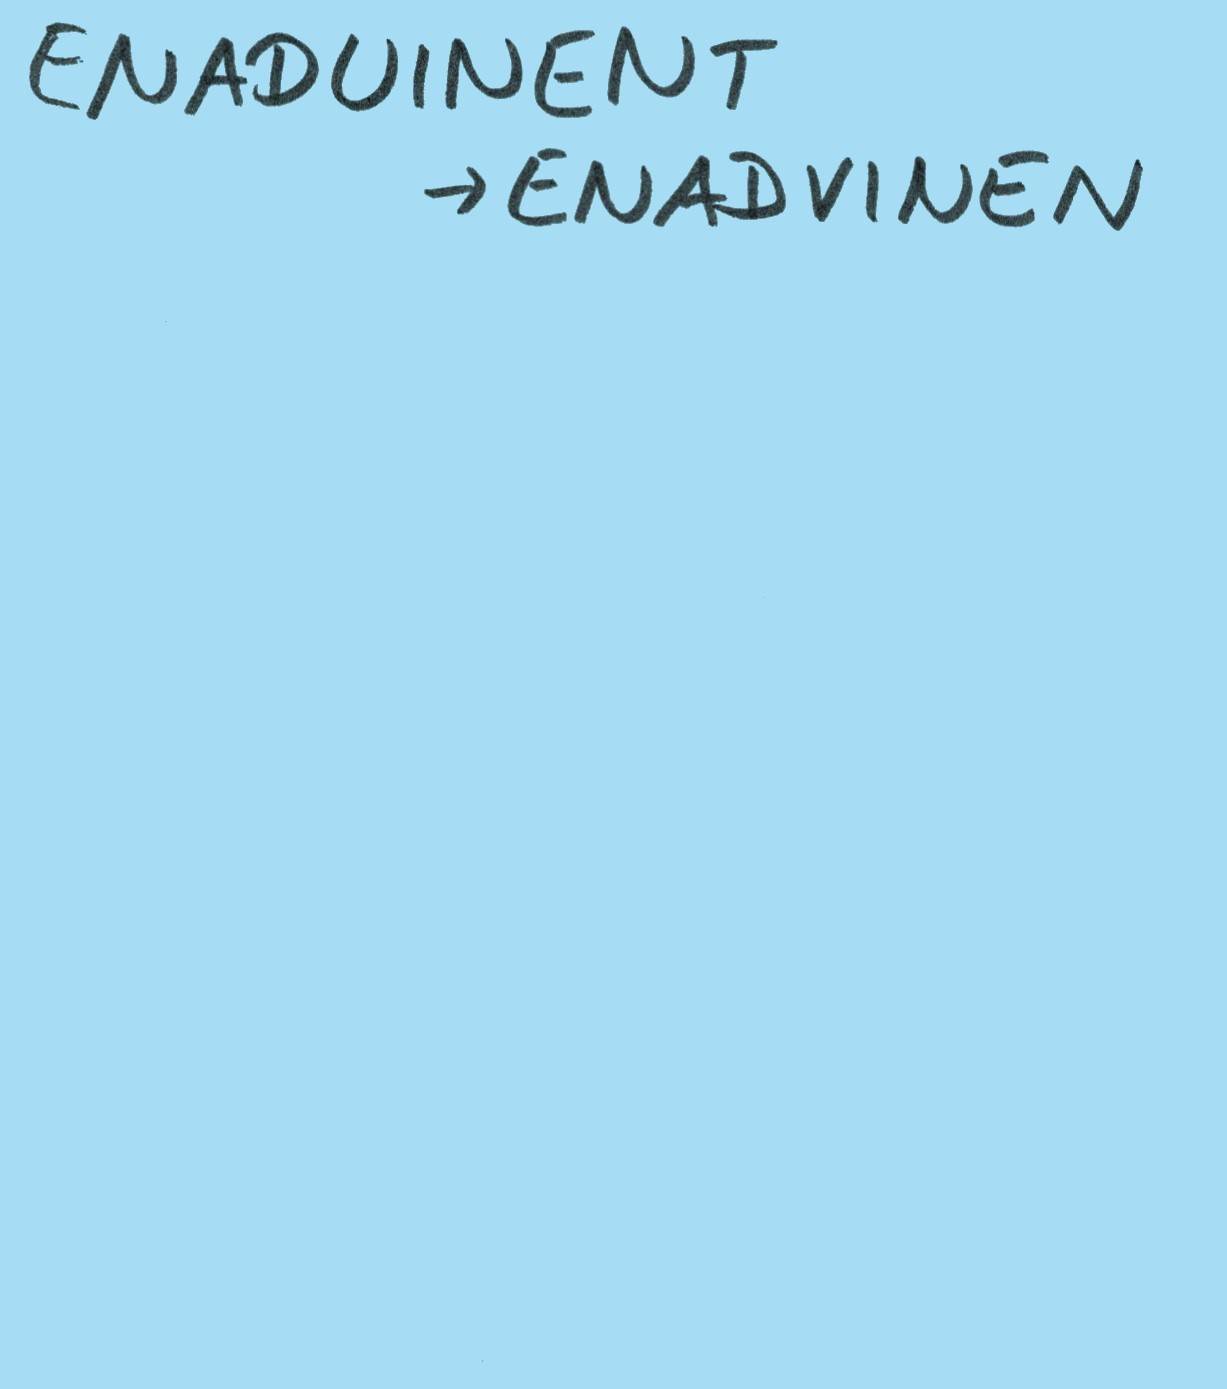 ENADUINENT
→ENADVINEN